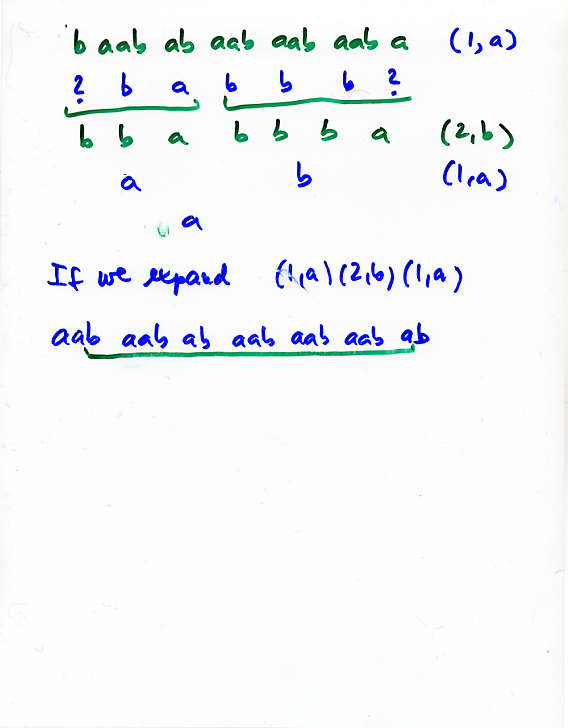 b aab ab aab aab aab a (1,a)
? b a b b b ?
b b a b b b a (2,b)
a b (1,a)
a
If we expand (1,a)(2,b)(1,a)
aab aab ab aab aab aab ab